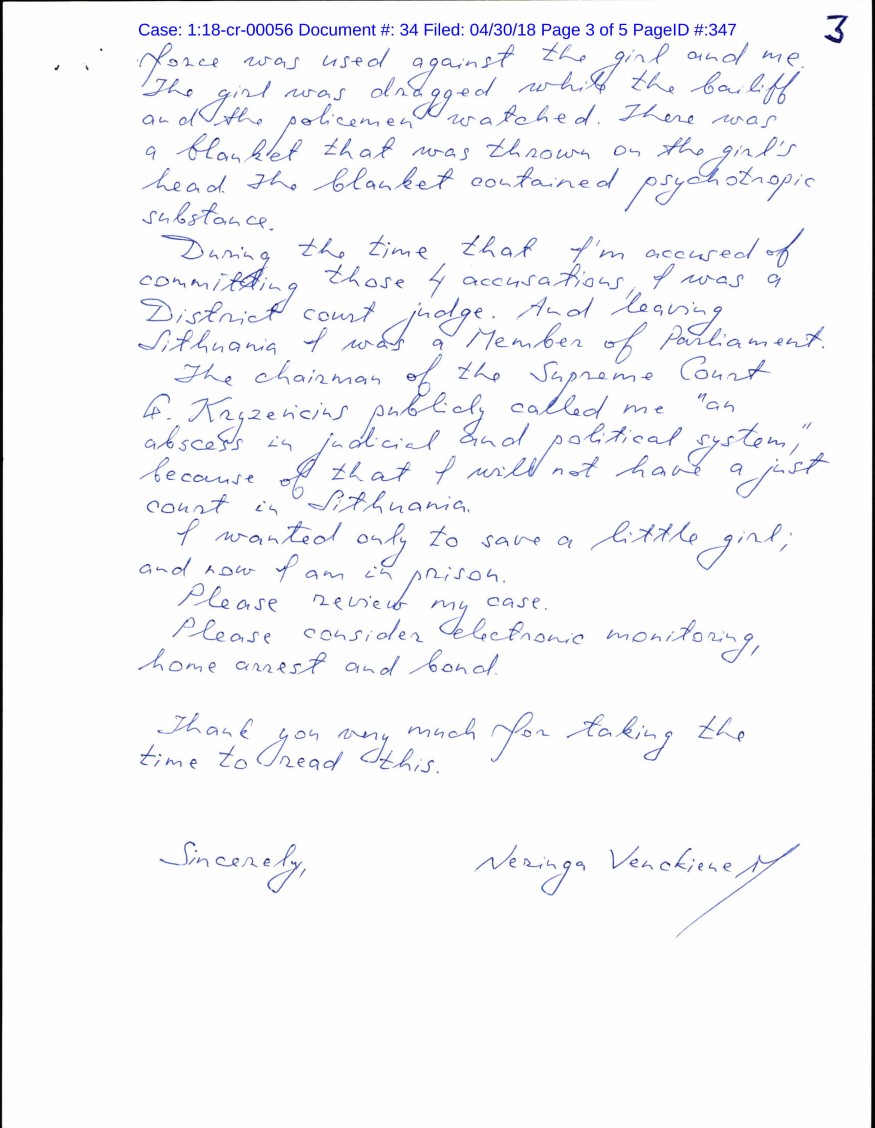 Case: 1:18-cr-00056 Document #: 34 Filed: 04/30/18 Page 3 of 5 PageID #:347
3
force was used against the girl and me.
The girl was dragged while the bailiff
and the policemen watched. There was
a blanket that was thrown on the girl's
head. The blanket contained psychotropic
substance.
During the time that I'm accused of
committing those 4 accusations, I was a
District court judge. And leaving
Lithuania I was a Member of Parliament.
The chairman of the Supreme Court
G. Kryzevicius publicly called me "an
abscess in judicial and political system,"
because of that I will not have a just
court in Lithuania.
I wanted only to save a little girl;
and now I am in prison.
Please review my case.
Please consider electronic monitoring,
home arrest and bond.
Thank you very much for taking the
time to read this.
Sincerely, Neringa Venckiene